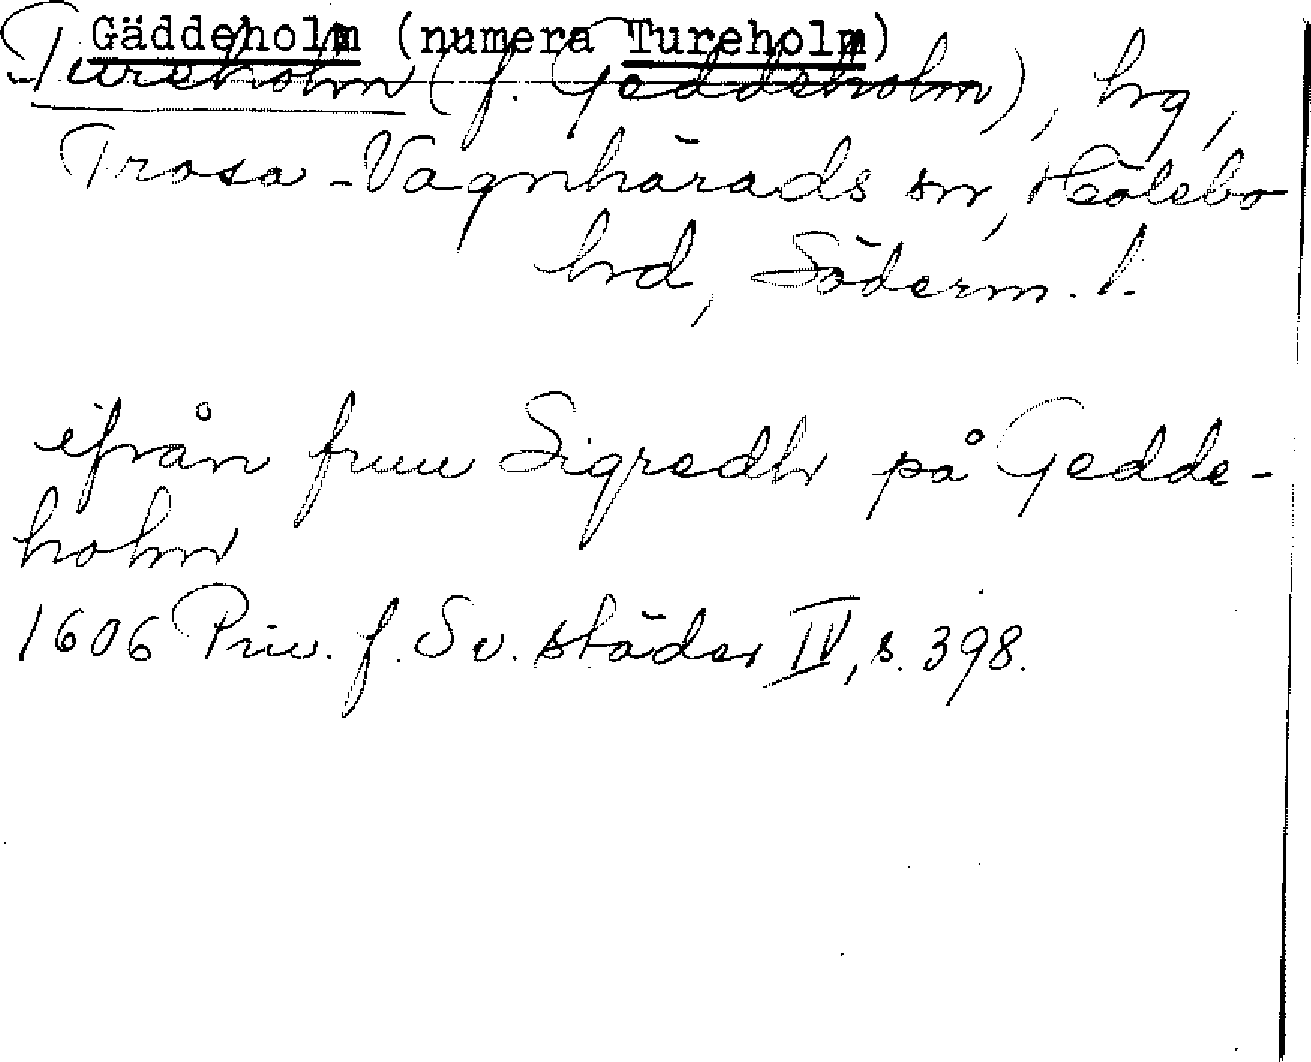 Gäddeholm (numera Tureholm)
Tureholm (f. Geddeholm), hg,
Trosa-Vagnhärads sn, Hölebo
hd, Söderm. l.
ifrån fruu Sigredh på Gedde-
holm
1606 Priv. f. Sv. städer IV, s. 398.